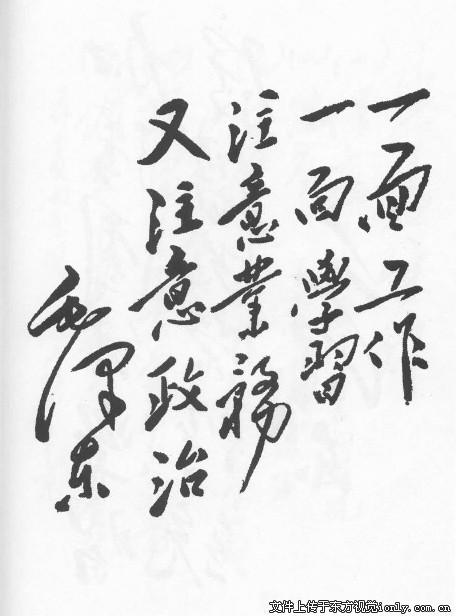 一面工作
一面學習
注意業務
又注意政治
毛澤东
文件上传于东方视觉ionly.com.cn